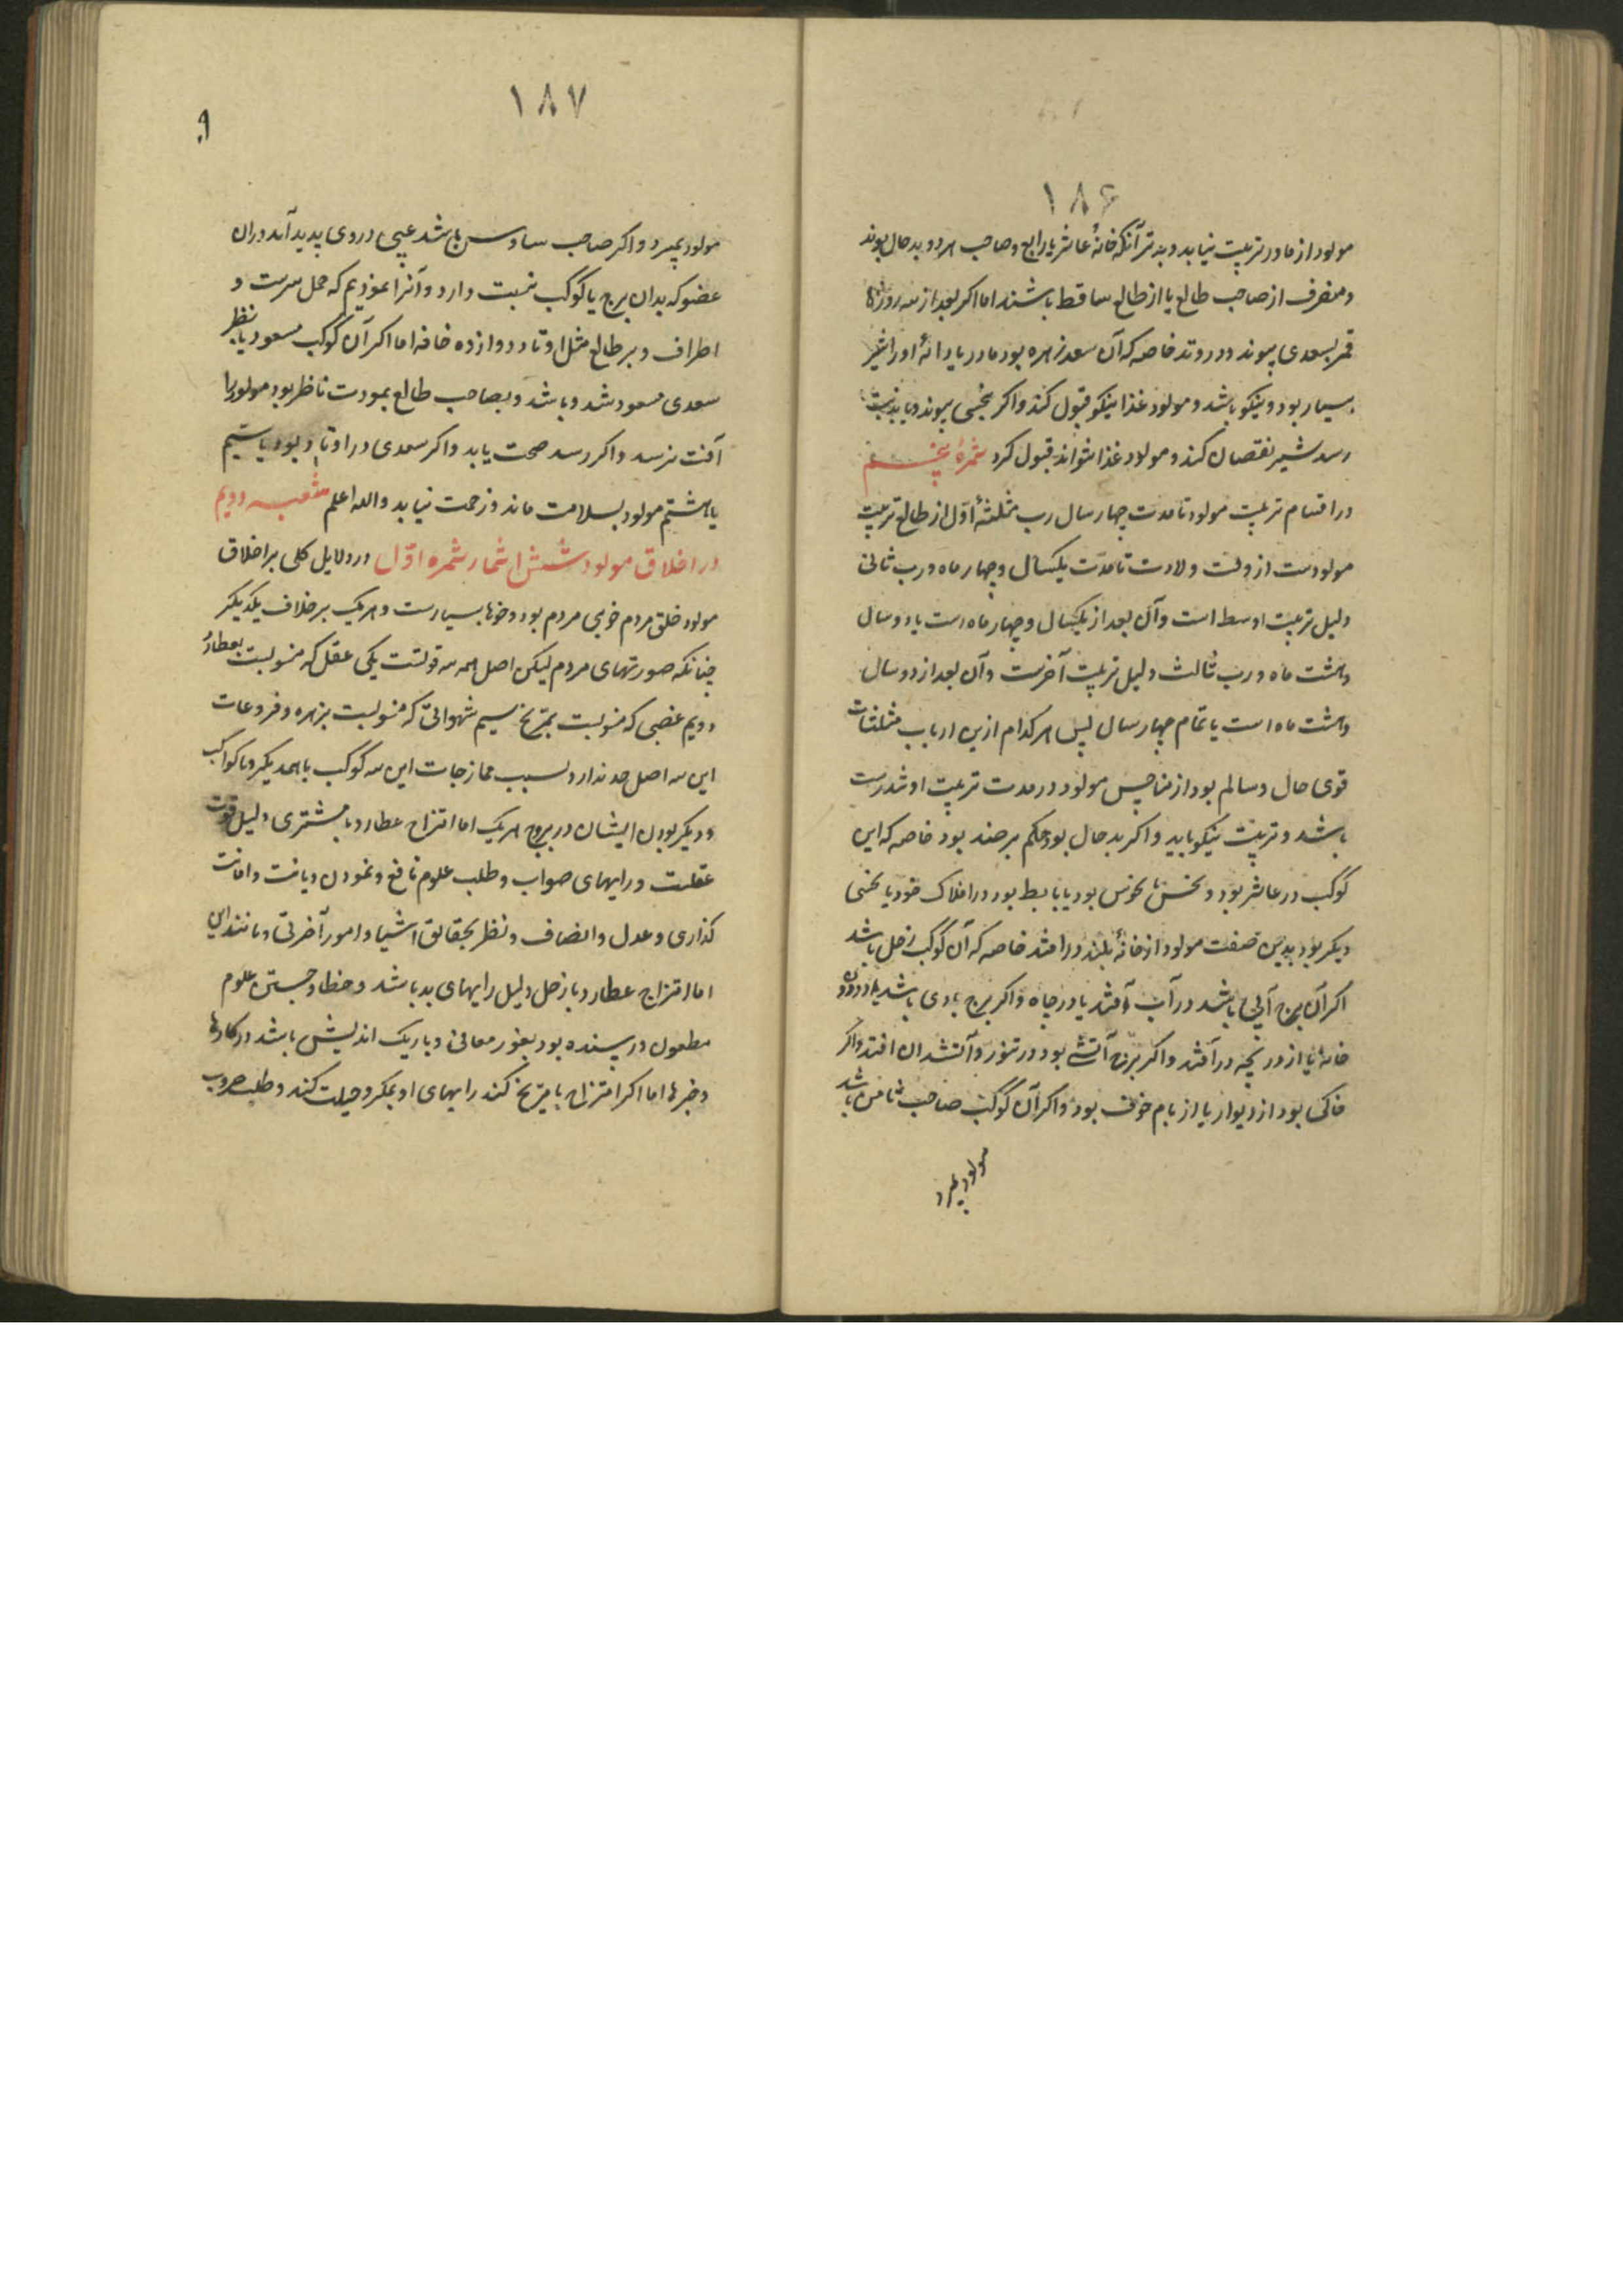 ۱۸۶
مولود از مادر تربیت نیابد و بدتر آنکه خانهٔ عاشر یا رابع و صاحب هر دو بدحال بوند
و منصرف از صاحب طالع یا از طالع ساقط باشند اما اکر بعد از سه روزها
قمر بسعدی پیوندد در وتد خاصه که آن سعد زهره بود مادر یا دایهٔ او را شیر
بسیار بود و نیکو باشد و مولود غذا نیکو قبول کند و اکر بنحسی پیوندد یا بذنب
رسد شیر نقصان کند و مولود غذا نتواند قبول کرد ثمرهٔ پنجم
در اقسام تربیت مولود تا مدت چهار سال رب مثلثهٔ اول از طالع تربیت
مولودست از وقت ولادت تا مدت یکسال و چهار ماه و رب ثانی
دلیل تربیت اوسط است و آن بعد از یکسال و چهار ماه است یا دو سال
و هشت ماه و رب ثالث دلیل تربیت آخرست و آن بعد از دو سال
و هشت ماه است یا تمام چهار سال پس هر کدام ازین ارباب مثلثات
قوی حال و سالم بود از مناحس مولود در مدت تربیت او تندرست
باشد و تربیت نیکو یابد و اکر بدحال بود حکم برضد بود خاصه که این
کوکب در عاشر بود و نحس نحوس بود یا هابط بود در افلاک خود یا نحسی
دیکر بود بدین صفت مولود از خانهٔ بلند در افتد خاصه که آن کوکب زحل باشد
اکر آن برج آبی باشد در آب افتد یا در چاه و اکر برج بادی باشد از درون
خانه یا از دریچه در افتد و اکر برج آتشی بود در تنور و آتشدان افتد و اکر
خاکی بود از دیوار یا از بام خوف بود و اکر آن کوکب صاحب ثامن باشد
مولود بمیرد
۱۸۷
مولود بمیرد و اکر صاحب سادس باشد عیبی در وی پدید آید در آن
عضو که بدان برج یا کوکب نسبت دارد و آنرا نموذیم که حمل سرست و
اطراف و بر طالع مثل اوتاد دوازده خانه اما اکر آن کوکب مسعود یا بنظر
سعدی مسعود شد و باشد و بصاحب طالع بمودت ناظر بود مولود را
آفت نرسد و اکر رسد صحت یابد و اکر سعدی در اوتاد بود یا سیم
یا هشتم مولود بسلامت ماند و زحمت نیابد والله اعلم شعبه دویم
در اخلاق مولود شش اثمار ثمره اوّل در دلایل کلی بر اخلاق
مولود خلق مردم خوی مردم بود و خوها بسیارست و هر یک برخلاف یکدیکر
چنانکه صورتهای مردم لیکن اصل همه سه قوتست یکی عقل که منسوبست بعطارد
دویم غضبی که منسوبست بمریخ سیم شهوانی که منسوبست بزهره و فروعات
این سه اصل حد ندارد بسبب ممازجات این سه کوکب با همدیکر و با کواکب
دیکر بودن ایشان در بروج هر یک اما امتزاج عطارد با مشتری دلیل قوت
عقلست و رایهای صواب و طلب علوم نافع و نمودن دیانت و امانت
کذاری و عدل و انصاف و نظر بحقایق اشیا و امور آخرتی و مانند این
اما امتزاج عطارد با زحل دلیل رایهای بد باشد و خطا و جستن علوم
مطعون در پسنده بود بغور معانی و باریک اندیش باشد در کارها
و خبرها اما اکر امتزاج با مریخ کند رایهای او بمکر و حیلت کند و طلب حروب